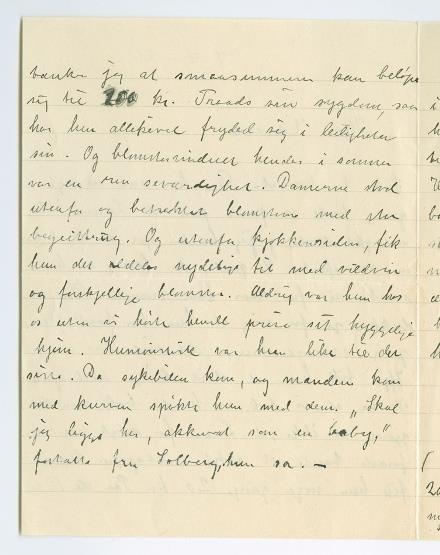 tænke jeg at smaasummerne kan beløpe
sig til 200 kr. Trods sin sygdom, saa
har hun allikevel fryded sig i leiligheten
sin. Og blomstervinduet hendes i sommer
var en ren seværdighet. Damerne stod
utenfor og betraktet blomstene med stor
begeistring. Og utenfor kjøkkensiden, fik
hun det aldeles nydelige til med vildvin
og forskjellige blomster. Aldrig var hun hos
os uten vi hørte hende prise sit hyggelige
hjem. Humoristisk var hun like til det
siste. Da sykebilen kom, og manden kom
med kurven spøkte hun med dem. „Skal
jeg ligge her, akkurat som en baby,"
fortalte fru Solberg, hun sa. —